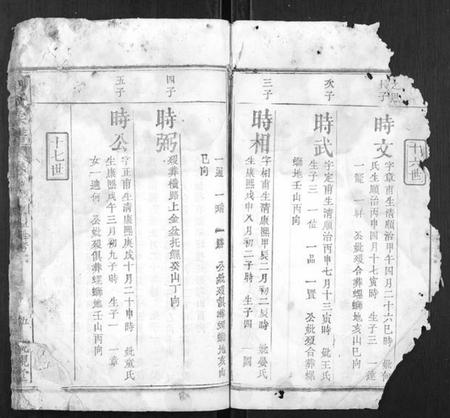 十六世
長子
時文
字章甫生清順治甲午四月二十六巳時 妣
氏生順治丙申四月十七寅時 生子三 一
一 一軒 公妣歿合葬螺螄地亥山巳向
次子
時武
字定甫生清順治丙申七月十三寅時 妣王氏
生子三 一位 一品 一置 公妣歿合葬螺
螄地壬山丙向
三子
時相
字相甫生清康熙甲辰二月初二辰時 妣晏氏
生康熙戊申八月初二子時 生子四 一國
一 一 一 公妣歿俱葬螺螄地亥山
巳向
四子
時弼
歿葬橫路上金盆托 癸山丁向
五子
時公
字正甫生清康熙庚戌十月二十申時 妣童氏
生康熙戊午三月初九子時 生子一 一章
女一適何 公妣歿俱葬螺螄地壬山丙向
十七世